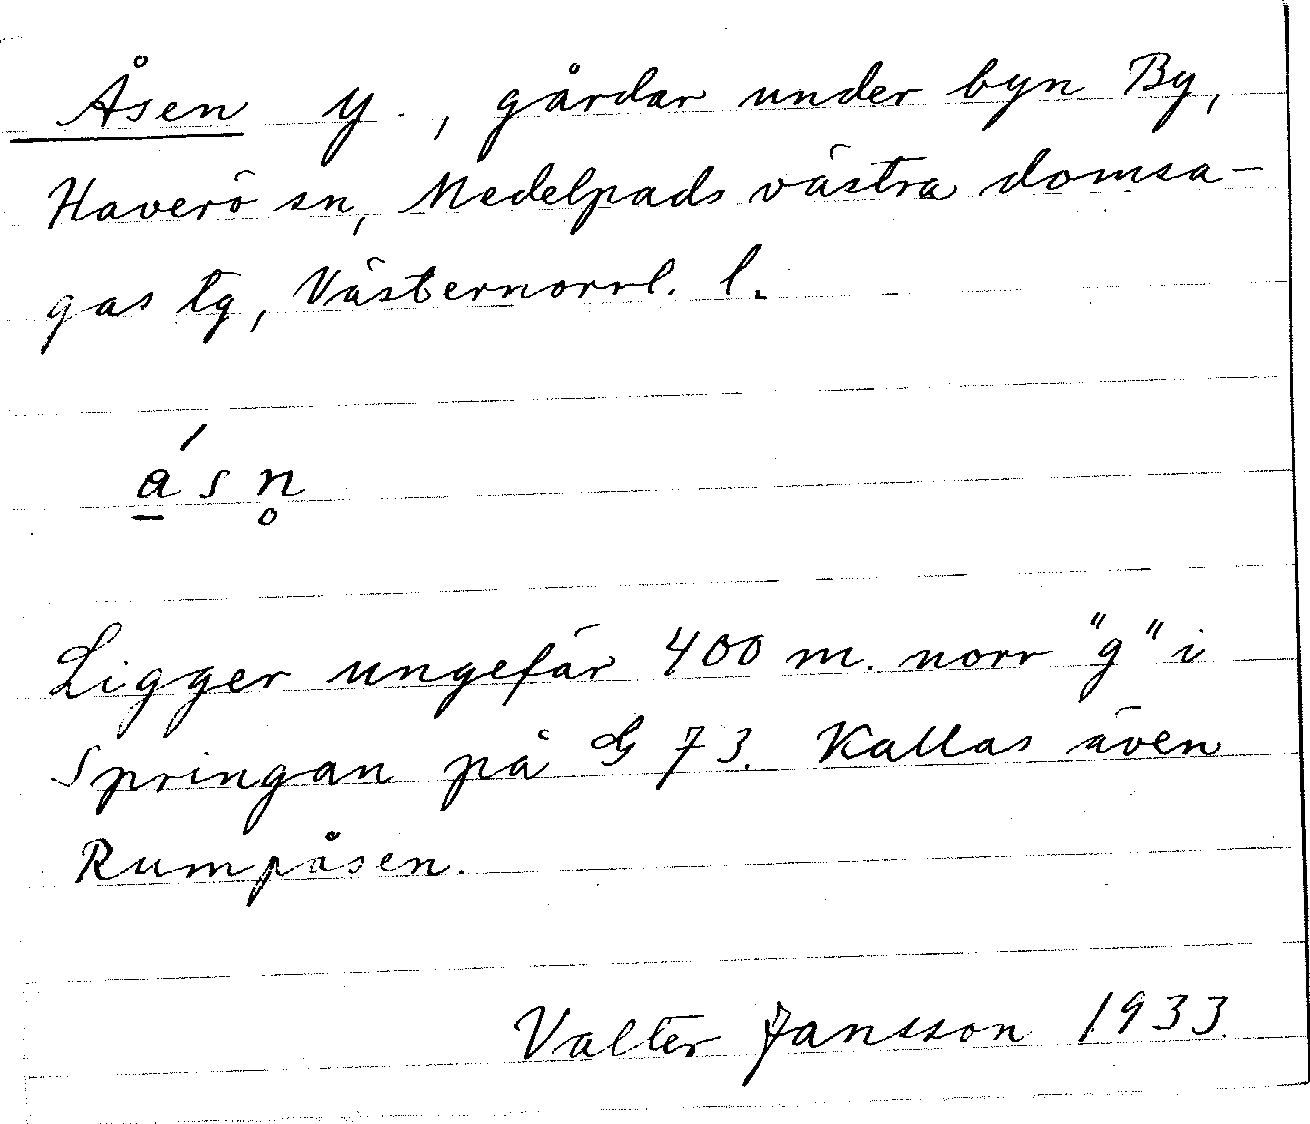 Åsen y., gårdar under byn By,
Haverö sn, Medelpads västra domsa-
gas tg, Västernorrl. l.
á̱sn̥
Ligger ungefär 400 m. norr "g" i
Springan på G 73. Kallas även
Rumpåsen.
Valter Jansson 1933.